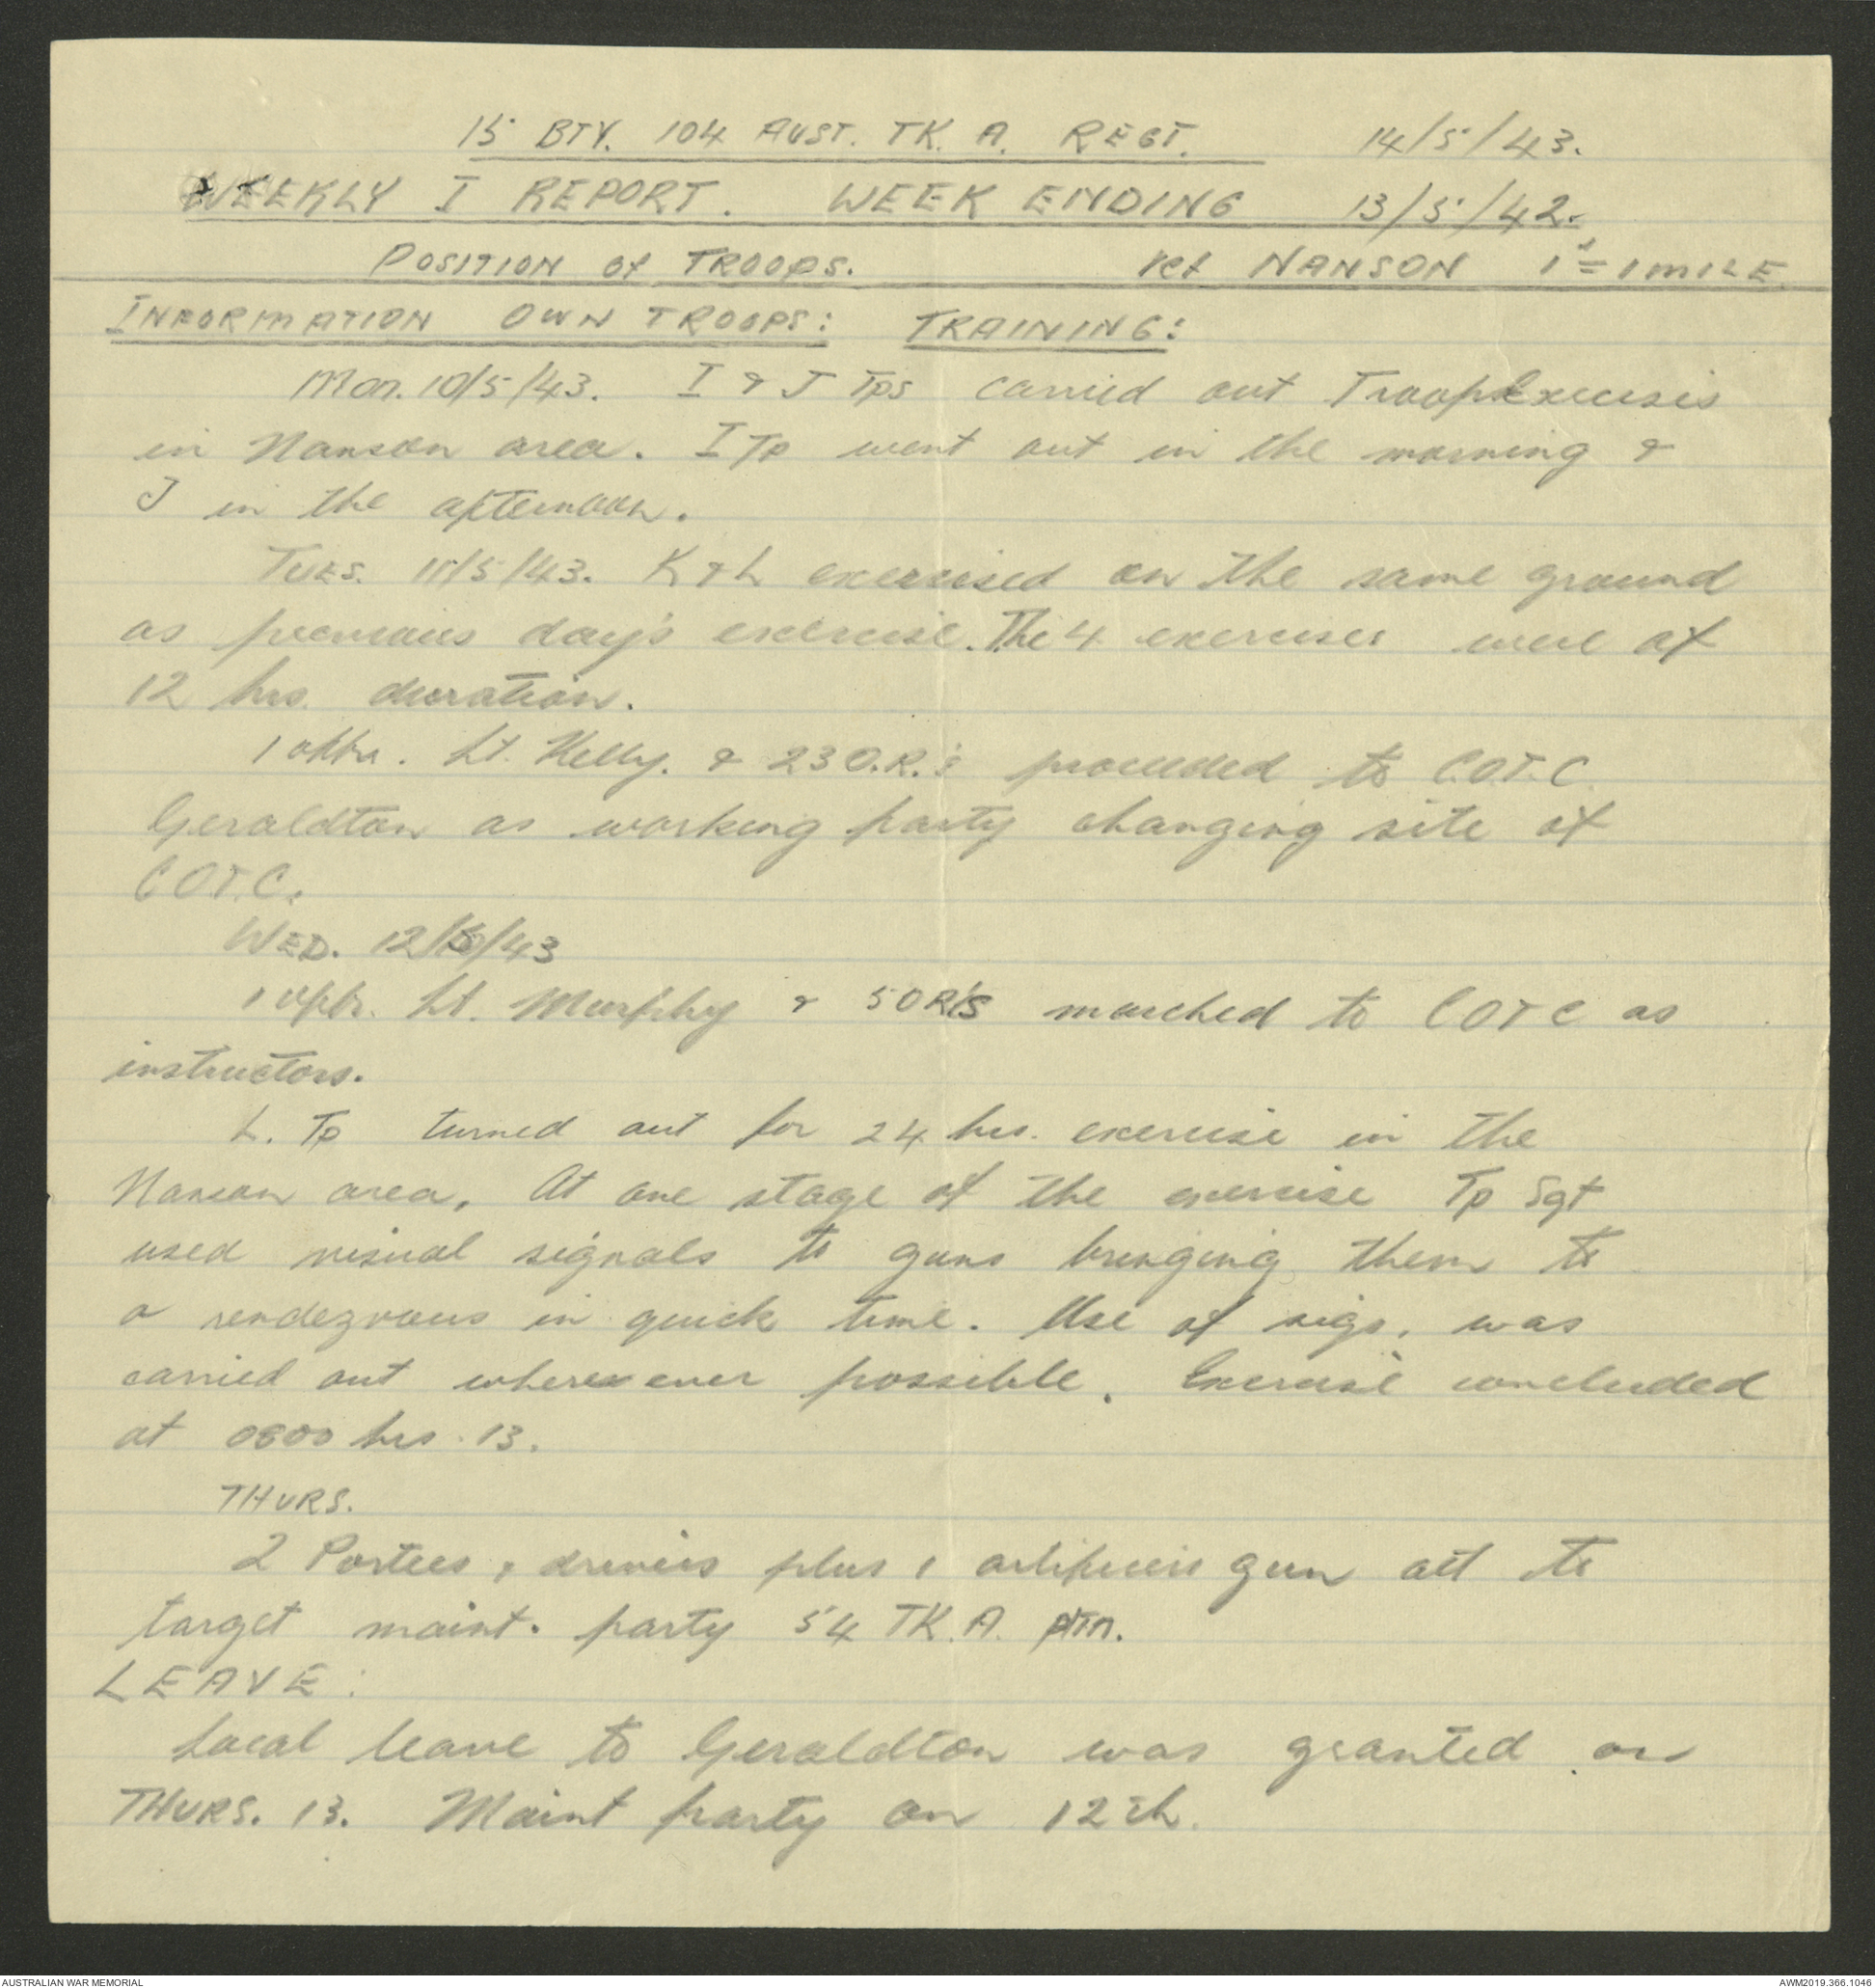 15 BTY. 104 AUST. TK. A. REGT. 14/5/43.
WEEKLY I REPORT. WEEK ENDING 13/5/42.
POSITION of TROOPS. ref NANSON 1" = 1 MILE
INFORMATION OWN TROOPS: TRAINING:
Mon. 10/5/43. I & J Tps carried out Troop Excersis
in Nanson area. I Tp went out in the morning &
J in the afternoon.
TUES. 11/5/43. K & L exercised on the same ground
as previous day's exercise. The 4 exercises were of
12 hrs. duration.
1 offr. Lt. Kelly. & 23 O.R.'s proceeded to C.O.T.C.
Geraldton as working party changing site of
C.O.T.C.
WED. 12/5/43
1 offr. Lt. Murphy & 5 OR'S marched to COTC as
instructors.
L. Tp turned out for 24 hrs. exercise in the
Nanson area. At one stage of the exercise Tp Sgt
used visual signals to guns bringing them to
a rendezvous in quick time. Use of sigs. was
carried out where ever possible. Exercise concluded
at 0800 hrs. 13.
THURS.
2 Portees, drivers plus 1 artificers gun att to
target maint. party 54 TK. A.
LEAVE:
Local leave to Geraldton was granted on
THURS. 13. Maint party on 12th.
AUSTRALIAN WAR MEMORIAL AWM2019.366.1046